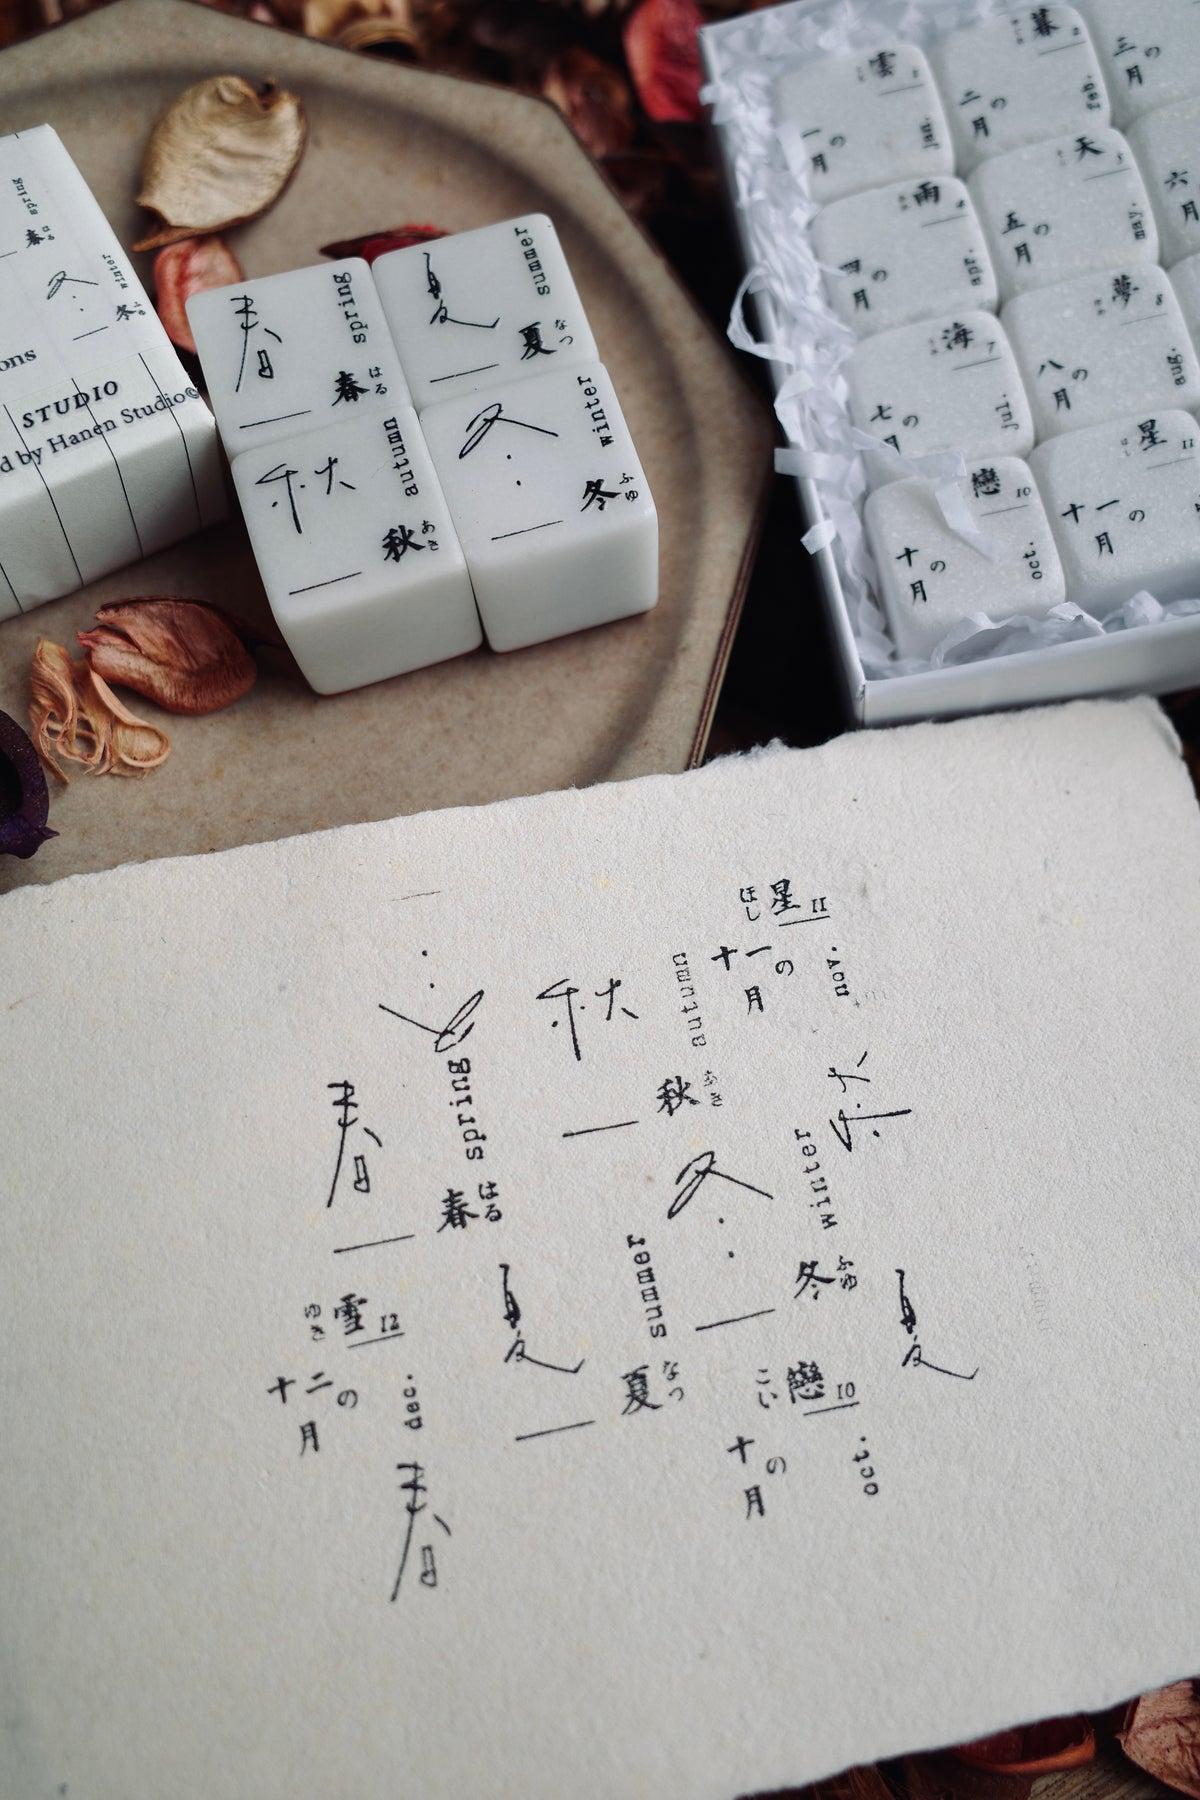 spring
春
winter
冬
ons
STUDIO
d by Hanen Studio©
春
spring
春
はる
夏
summer
夏
なつ
秋
autumn
秋
あき
冬
winter
冬
ふゆ
雲 1
一月の
jan.
暮 2
二月の
feb.
三月の
雨 4
四月の
apr.
天 5
五月の
may.
六月
海 7
七月の
jul.
夢 8
八月の
aug.
戀 10
十月の
oct.
星 11
十一月の
ほし
星 11
十一月の
nov.
秋
autumn
秋
あき
冬
春
spring
春
はる
秋
冬
winter
冬
ふゆ
ゆき
雪 12
十二月の
dec.
夏
summer
夏
なつ
夏
こい
戀 10
十月の
oct.
春